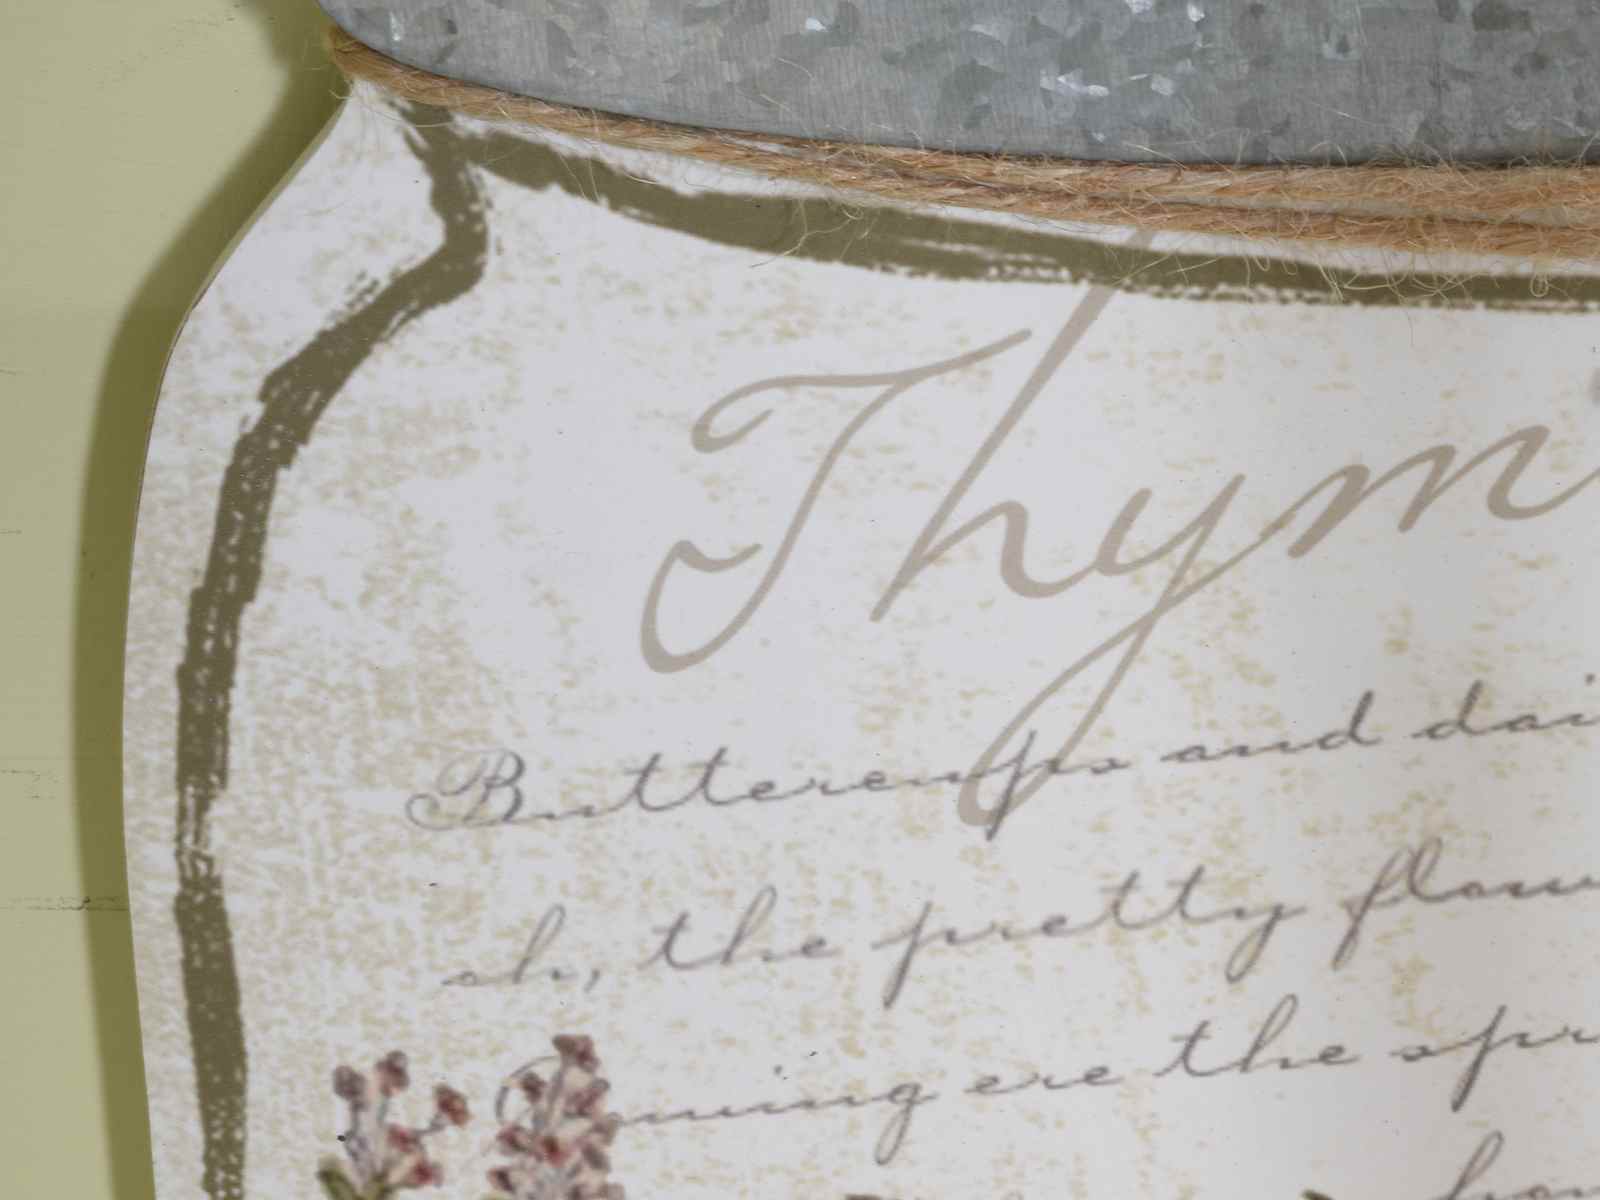 Thym
Buttercups and dai
oh, the pretty flow
Coming ere the spr